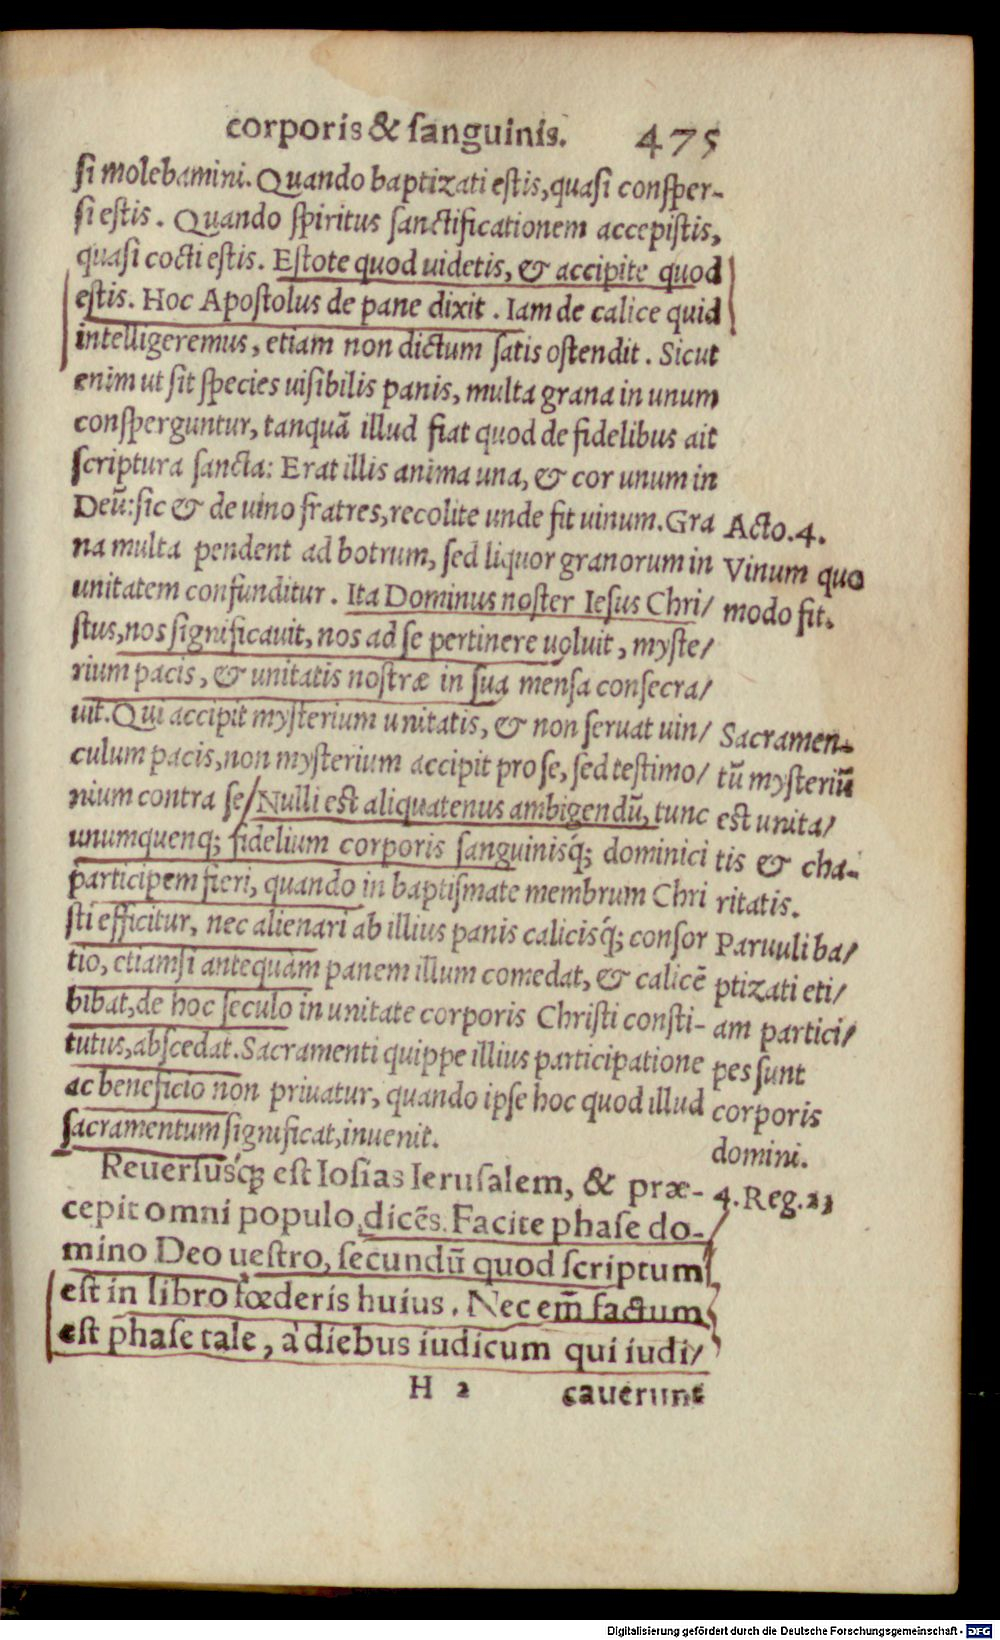 corporis & ſanguinis. 475
ſi molebamini. Quando baptizati eſtis, quaſi conſper-
ſi eſtis. Quando ſpiritus ſanctificationem accepiſtis,
quaſi cocti eſtis. Eſtote quod uidetis, & accipite quod
eſtis. Hoc Apoſtolus de pane dixit. Iam de calice quid
intelligeremus, etiam non dictum ſatis oſtendit. Sicut
enim ut ſit ſpecies uiſibilis panis, multa grana in unum
conſperguntur, tanquã illud fiat quod de fidelibus ait
ſcriptura ſancta: Erat illis anima una, & cor unum in
Deũ: ſic & de uino fratres, recolite unde fit uinum. Gra
na multa pendent ad botrum, ſed liquor granorum in
unitatem confunditur. Ita Dominus noſter Ieſus Chri/
ſtus, nos ſignificauit, nos ad ſe pertinere uoluit, myſte/
rium pacis, & unitatis noſtræ in ſua menſa conſecra/
uit. Qui accipit myſterium unitatis, & non ſeruat uin/
culum pacis, non myſterium accipit pro ſe, ſed teſtimo/
nium contra ſe/ Nulli eſt aliquatenus ambigendũ, tunc
unumquenq; fidelium corporis ſanguinisq́; dominici
participem fieri, quando in baptiſmate membrum Chri
ſti efficitur, nec alienari ab illius panis calicisq́; conſor
tio, etiamſi antequam panem illum comedat, & calicẽ
bibat, de hoc ſeculo in unitate corporis Chriſti conſti-
tutus, abſcedat. Sacramenti quippe illius participatione
ac beneficio non priuatur, quando ipſe hoc quod illud
ſacramentum ſignificat, inuenit.
Reuerſusq́; eſt Ioſias Ieruſalem, & præ-
cepit omni populo, dicẽs. Facite phaſe do-
mino Deo ueſtro, ſecundũ quod ſcriptum
eſt in libro fœderis huius. Nec em̃ factum
eſt phaſe tale, à diebus iudicum qui iudi/
H 2 cauerunt
Acto. 4.
Vinum quo
modo fit.
Sacramen-
tũ myſteriũ
eſt unita/
tis & cha-
ritatis.
Paruuli ba/
ptizati eti/
am partici/
pes ſunt
corporis
domini.
4. Reg. 23
Digitalisierung gefördert durch die Deutsche Forschungsgemeinschaft - DFG